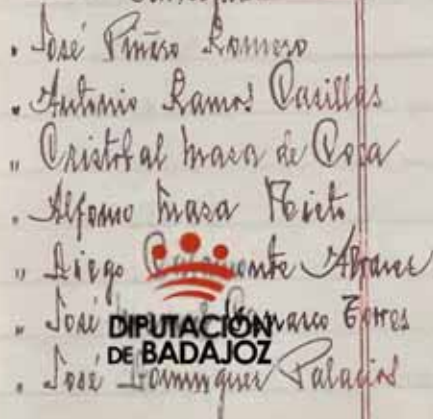 . José Piñero Romero
. Antonio Ramos Casillas
" Cristobal Masa de Cosa
. Alfonso Masa Nieto
" Diego Alvarez
" José Torres
DIPUTACIÓN
DE BADAJOZ
. José Dominguez Palacios